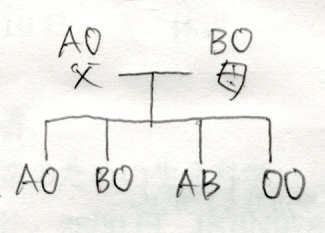 AO BO
父 母
AO BO AB OO